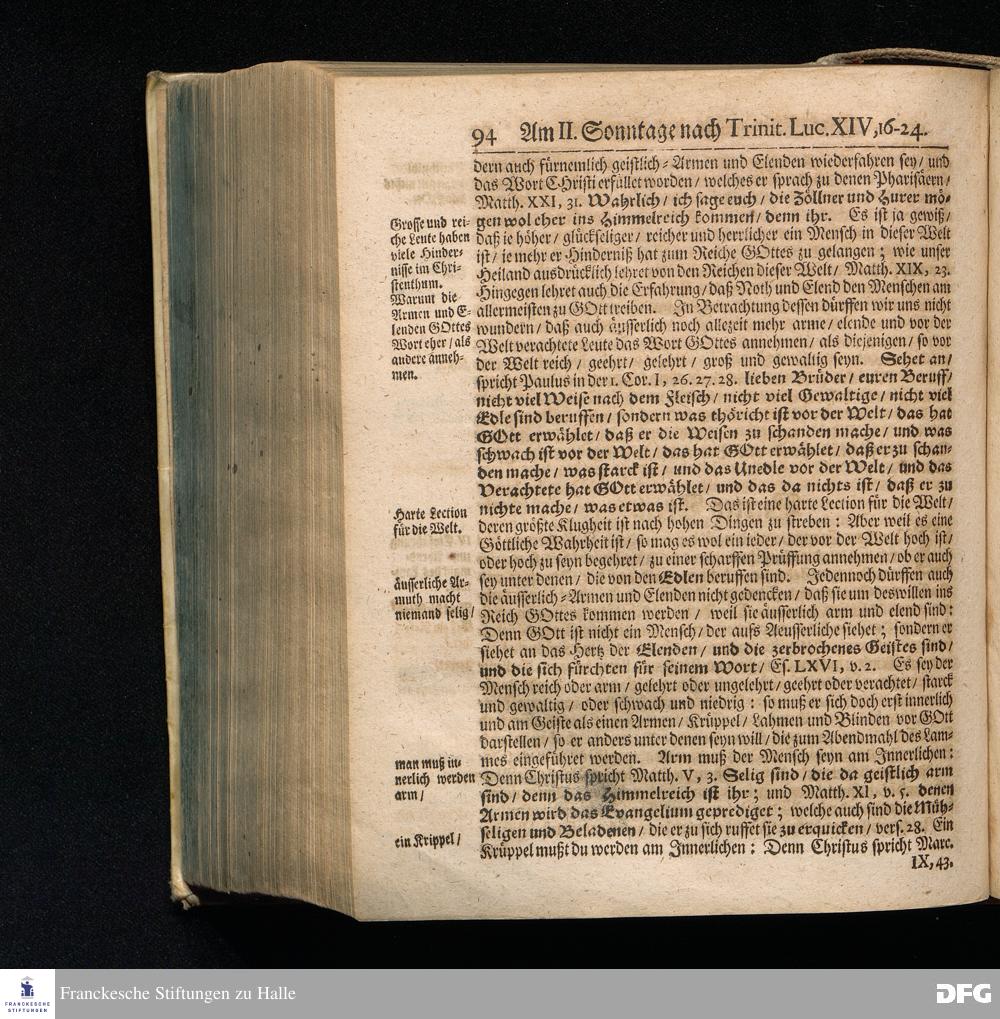 94 Am II. Sonntage nach Trinit. Luc. XIV, 16-24.
dern auch fürnemlich geistlich-Armen und Elenden wiederfahren sey/ und
das Wort CHristi erfüllet worden/ welches er sprach zu denen Pharisäern/
Matth. XXI, 31. Wahrlich/ ich sage euch/ die Zöllner und Hurer mö-
gen wol eher ins Himmelreich kommen/ denn ihr. Es ist ja gewiß/
daß ie höher/ glückseliger/ reicher und herrlicher ein Mensch in dieser Welt
ist/ ie mehr er Hinderniß hat zum Reiche GOttes zu gelangen; wie unser
Heiland ausdrücklich lehret von den Reichen dieser Welt/ Matth. XIX, 23.
Hingegen lehret auch die Erfahrung/ daß Noth und Elend den Menschen am
allermeisten zu GOtt treiben. In Betrachtung dessen dürffen wir uns nicht
wundern/ daß auch äusserlich noch allezeit mehr arme/ elende und vor der
Welt verachtete Leute das Wort GOttes annehmen/ als diejenigen/ so vor
der Welt reich/ geehrt/ gelehrt/ groß und gewaltig seyn. Sehet an/
spricht Paulus in der 1. Cor. I, 26. 27. 28. lieben Brüder/ euren Beruff/
nicht viel Weise nach dem Fleisch/ nicht viel Gewaltige/ nicht viel
Edle sind beruffen/ sondern was thöricht ist vor der Welt/ das hat
GOtt erwählet/ daß er die Weisen zu schanden mache/ und was
schwach ist vor der Welt/ das hat GOtt erwählet/ daß er zu schan-
den mache/ was starck ist/ und das Unedle vor der Welt/ und das
Verachtete hat GOtt erwählet/ und das da nichts ist/ daß er zu
nichte mache/ was etwas ist. Das ist eine harte Lection für die Welt/
deren größte Klugheit ist nach hohen Dingen zu streben: Aber weil es eine
Göttliche Wahrheit ist/ so mag es wol ein ieder/ der vor der Welt hoch ist/
oder hoch zu seyn begehret/ zu einer scharffen Prüffung annehmen/ ob er auch
sey unter denen/ die von den Edlen beruffen sind. Jedennoch dürffen auch
die äusserlich-Armen und Elenden nicht gedencken/ daß sie um deswillen ins
Reich GOttes kommen werden/ weil sie äusserlich arm und elend sind:
Denn GOtt ist nicht ein Mensch/ der aufs Aeusserliche siehet; sondern er
siehet an das Hertz der Elenden/ und die zerbrochenes Geistes sind/
und die sich fürchten für seinem Wort/ Es. LXVI, v. 2. Es sey der
Mensch reich oder arm/ gelehrt oder ungelehrt/ geehrt oder verachtet/ starck
und gewaltig/ oder schwach und niedrig: so muß er sich doch erst innerlich
und am Geiste als einen Armen/ Krüppel/ Lahmen und Blinden vor GOtt
darstellen/ so er anders unter denen seyn will/ die zum Abendmahl des Lam-
mes eingeführet werden. Arm muß der Mensch seyn am Innerlichen:
Denn Christus spricht Matth. V, 3. Selig sind/ die da geistlich arm
sind/ denn das Himmelreich ist ihr; und Matth. XI, v. 5. denen
Armen wird das Evangelium geprediget; welche auch sind die Müh-
seligen und Beladenen/ die er zu sich ruffet sie zu erquicken/ vers. 28. Ein
Krüppel mußt du werden am Innerlichen: Denn Christus spricht Marc.
IX, 43.
Grosse und rei-
che Leute haben
viele Hinder-
nisse im Chri-
stenthum.
Warum die
Armen und E-
lenden GOttes
Wort eher/ als
andere anneh-
men.
Harte Lection
für die Welt.
äusserliche Ar-
muth macht
niemand selig/
man muß in-
nerlich werden
arm/
ein Krippel/
FRANCKESCHE
STIFTUNGEN
Franckesche Stiftungen zu Halle
DFG